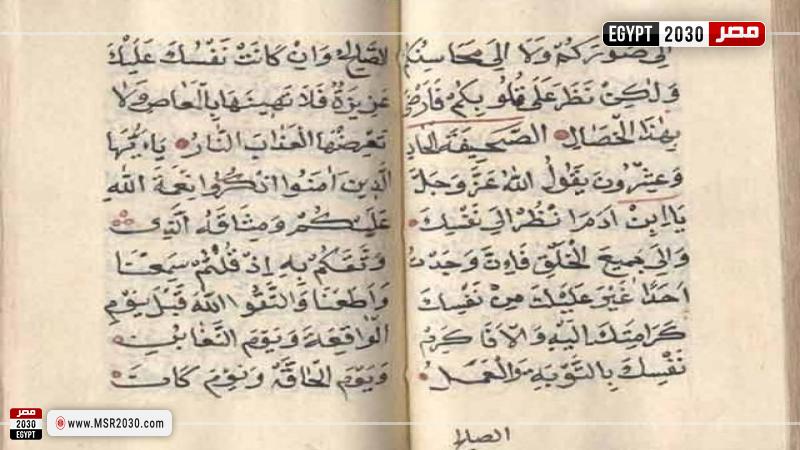 EGYPT 2030 مصر
صوركم ولا الى محاسنكم
ولكن نظر على قلوبكم فارضو
بهذا الخصال الصحيفة الحاد
وعشرون يقول الله عز وجل
يا ابن ادم انظر الى نفسك
والى جميع الخلق فان وجدت
احدا غير عليك من نفسك
كرامتك اليه والا فاكرم
نفسك بالتوبة والعمل
الصالح
الصالح وان كانت نفسك عليك
عزيزة فلا تهينها بالمعاصي ولا
تعرضها العذاب النار ياءيها
الذين امنوا اذكروا نعمة الله
عليكم ومثاقه الذي
وثقكم به اذ قلتم سمعنا
واطعنا واتقوا الله قبل يوم
الواقعة ويوم التغابن
ويوم الحاقة ويوم كان
مصر
2030
EGYPT
www.MSR2030.com